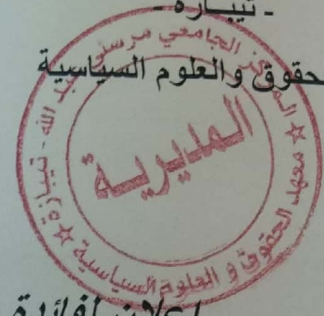 - تيبازة -
حقوق والعلوم السياسية
المركز الجامعي مرسلي عبد الله - تيبازة
المديرية
معهد الحقوق و العلوم السياسية
إعلان لفائدة